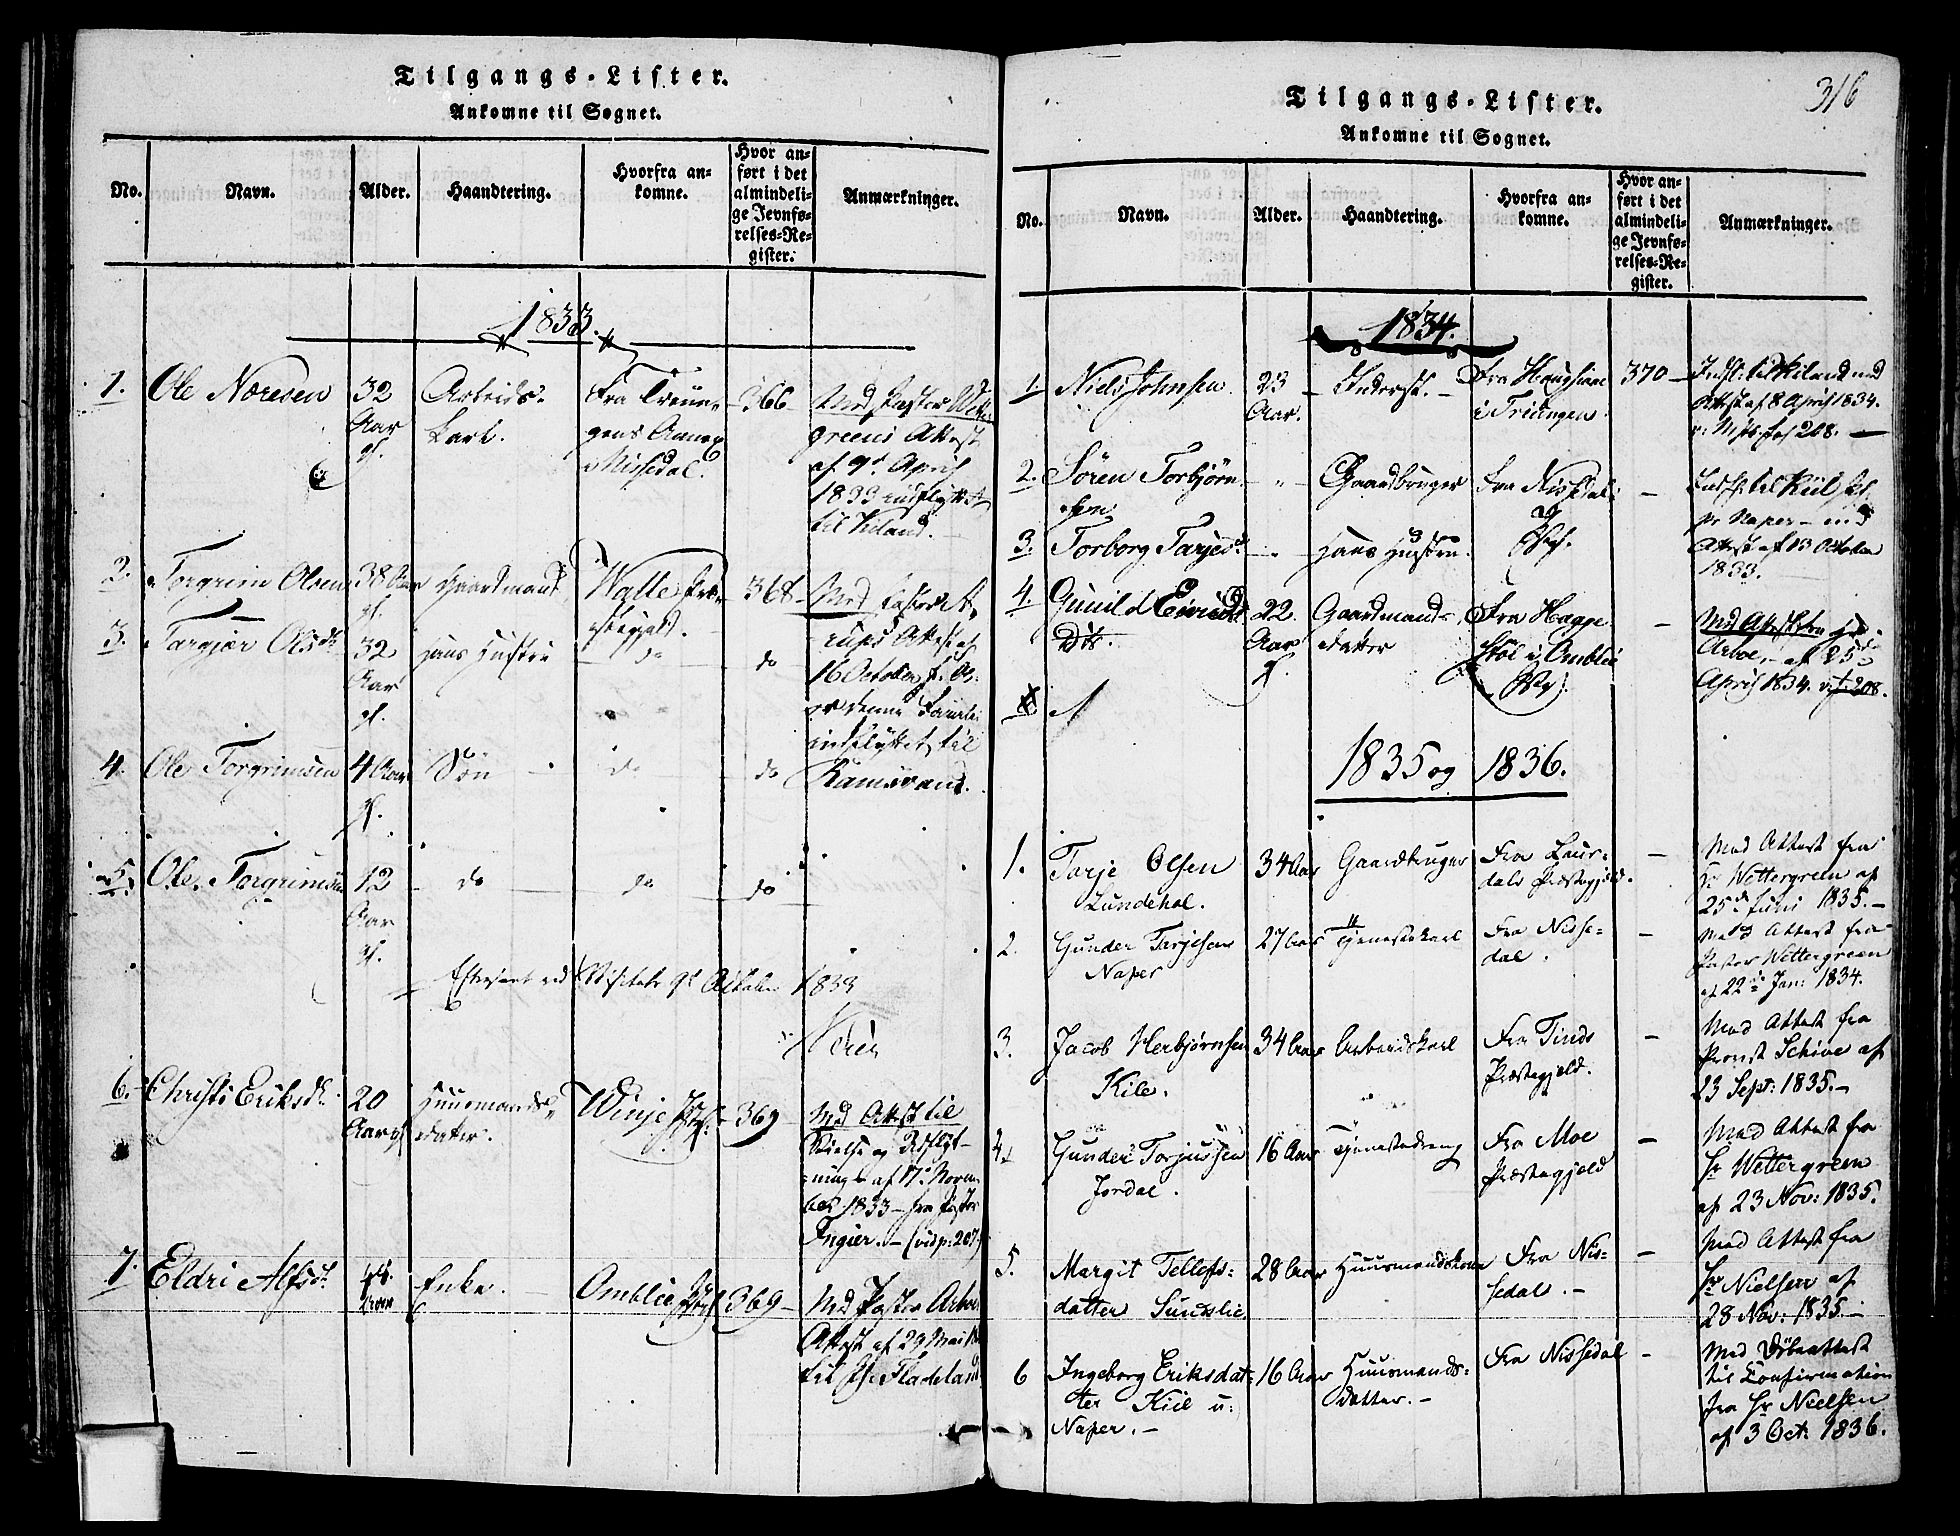 Tilgangs-Lister.
Ankomne til Sognet.
No.
Navn.
Alder.
Haandtering.
Hvorfra an-
komne.
Hvor an-
ført i det
almindeli-
ge Jevnfø-
relses-Re-
gister.
Anmærkninger.
1833.
1. Ole Noresen 32 Aar gl. Arbeids-
karl. Fra Treun-
gens Annex
i Nissedal. 366
Med Pastor Wetter-
greens Attest
af 9d April
1833 indflyttet
til Kiland.
2. Torgrim Olsen 38 Aar gl. Gaardmand Walle Præ-
stegjeld. 368
3. Targjær Olsd. 32 Aar gl. Hans Hustru do do
Attest af
16 October
denne Familie
indflyttet til
4. Ole Torgrimsen 4 Aar gl. Søn do do
5. Ole Torgrimsen 12 Aar gl. do do do
Efterseet ved Visitats 9d October 1833
6. Christi Eriksd. 20 Aar gl. Huusmands-
datter. Winje Pgl. 369
Med Attest til
og Indflyt-
ning af 17d Novem-
ber 1833 fra Pastor
Ingier. (vid p: 207.)
7. Eldri Alfsd. 44 Enke. Omblie Pgl. 369
Med Pastor Arboe
Attest af 29 Mai
til Fladeland
Tilgangs-Lister.
316
Ankomne til Sognet.
No.
Navn.
Alder.
Haandtering.
Hvorfra an-
komne.
Hvor an-
ført i det
almindeli-
ge Jevnfø-
relses-Re-
gister.
Anmærkninger.
1834.
1. Niels Johnsen 23 Aar. Inderst. Fra Haugsjaae
i Triungen 370
Indfl. til Kiland med
Attest af 8 April 1834.
208.
2. Søren Torbjørn-
sen Gaardbruger Fra Nissedal
Pgl.
Indfl. til Kiil
Naper med
Attest af 13 October
1833.
3. Torborg Tarjesd. Hans Hustru.
4. Gunild Eivinds
Dtr. 22 Aar Gaardmands-
datter Fra Hagge-
støl i Omblie
Pgl.
Med Attest fra Hr
Arboe, af 25de
April 1834. 208.
1835 og 1836.
1. Tarje Olsen
Lundehol. 34 Aar Gaardbruger Fra Laur-
dals Præstegjeld.
Med Attest fra
Hr Wettergreen af
25de Juni 1835.
2. Gunder Tarjesen
Naper 27 Aar Tjenestekarl Fra Nisse-
dal.
Med Attest fra
Pastor Wettergreen
af 22de Jan: 1834.
3. Jacob Herbjørnsen
Kile. 34 Aar Arbeidskarl Fra Tinds
Præstegjeld.
Med Attest fra
Provst Schive af
23 Sept: 1835.
4. Gunder Torjussen
Jordal. 16 Aar Tjenestedreng Fra Moe
Præstegjeld
Med Attest fra
Hr Wettergreen
af 23 Nov: 1835.
5. Margit Tellefs-
datter Sundslie. 28 Aar Huusmandskone Fra Nis-
sedal.
Med Attest fra
Hr Nielsen af
28 Nov: 1835.
6 Ingeborg Eriksdat-
ter Kiil u:
Naper. 16 Aar Huusmands-
datter. Fra Nissedal
Med Døbeattest
til Confirmation
fra Hr Nielsen
af 3 Oct: 1836.